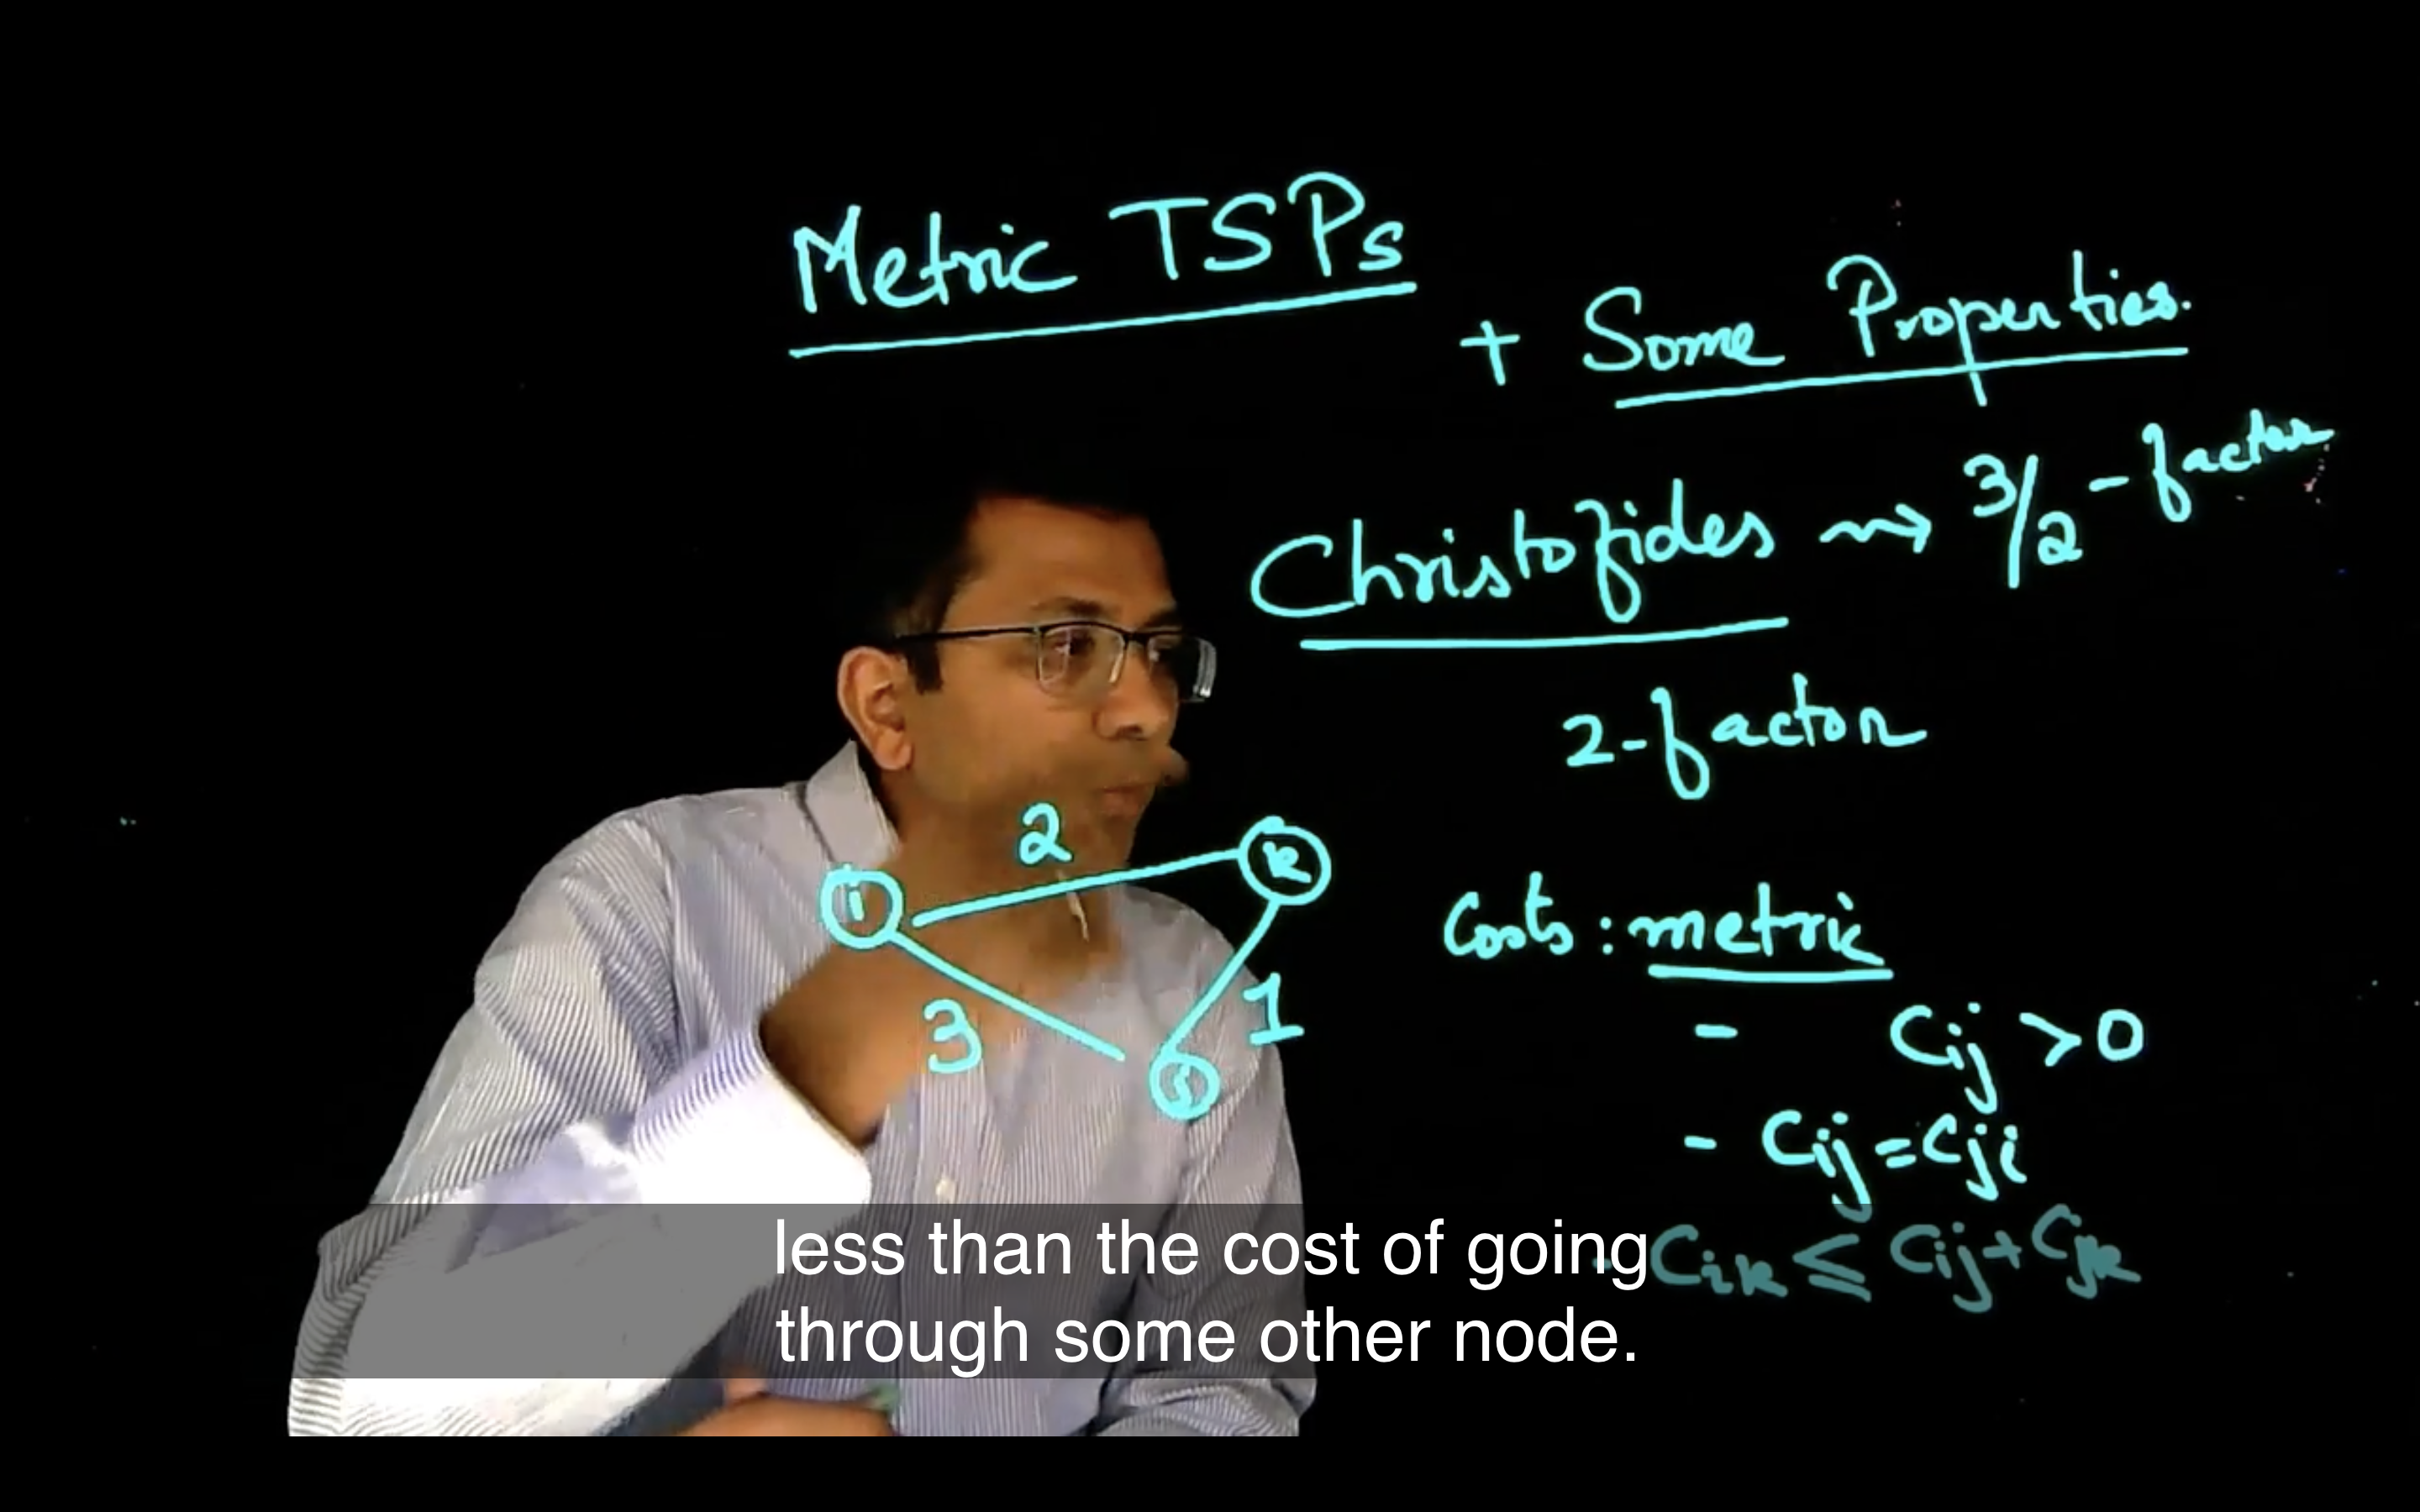 Metric TSPs
+ Some Properties.
Christofides ⇝ 3/2 - factor
2-factor
2
i
k
3
1
j
Costs : metric
- Cij > 0
- Cij = Cji
- Cik ≤ Cij + Cjk
less than the cost of going
through some other node.